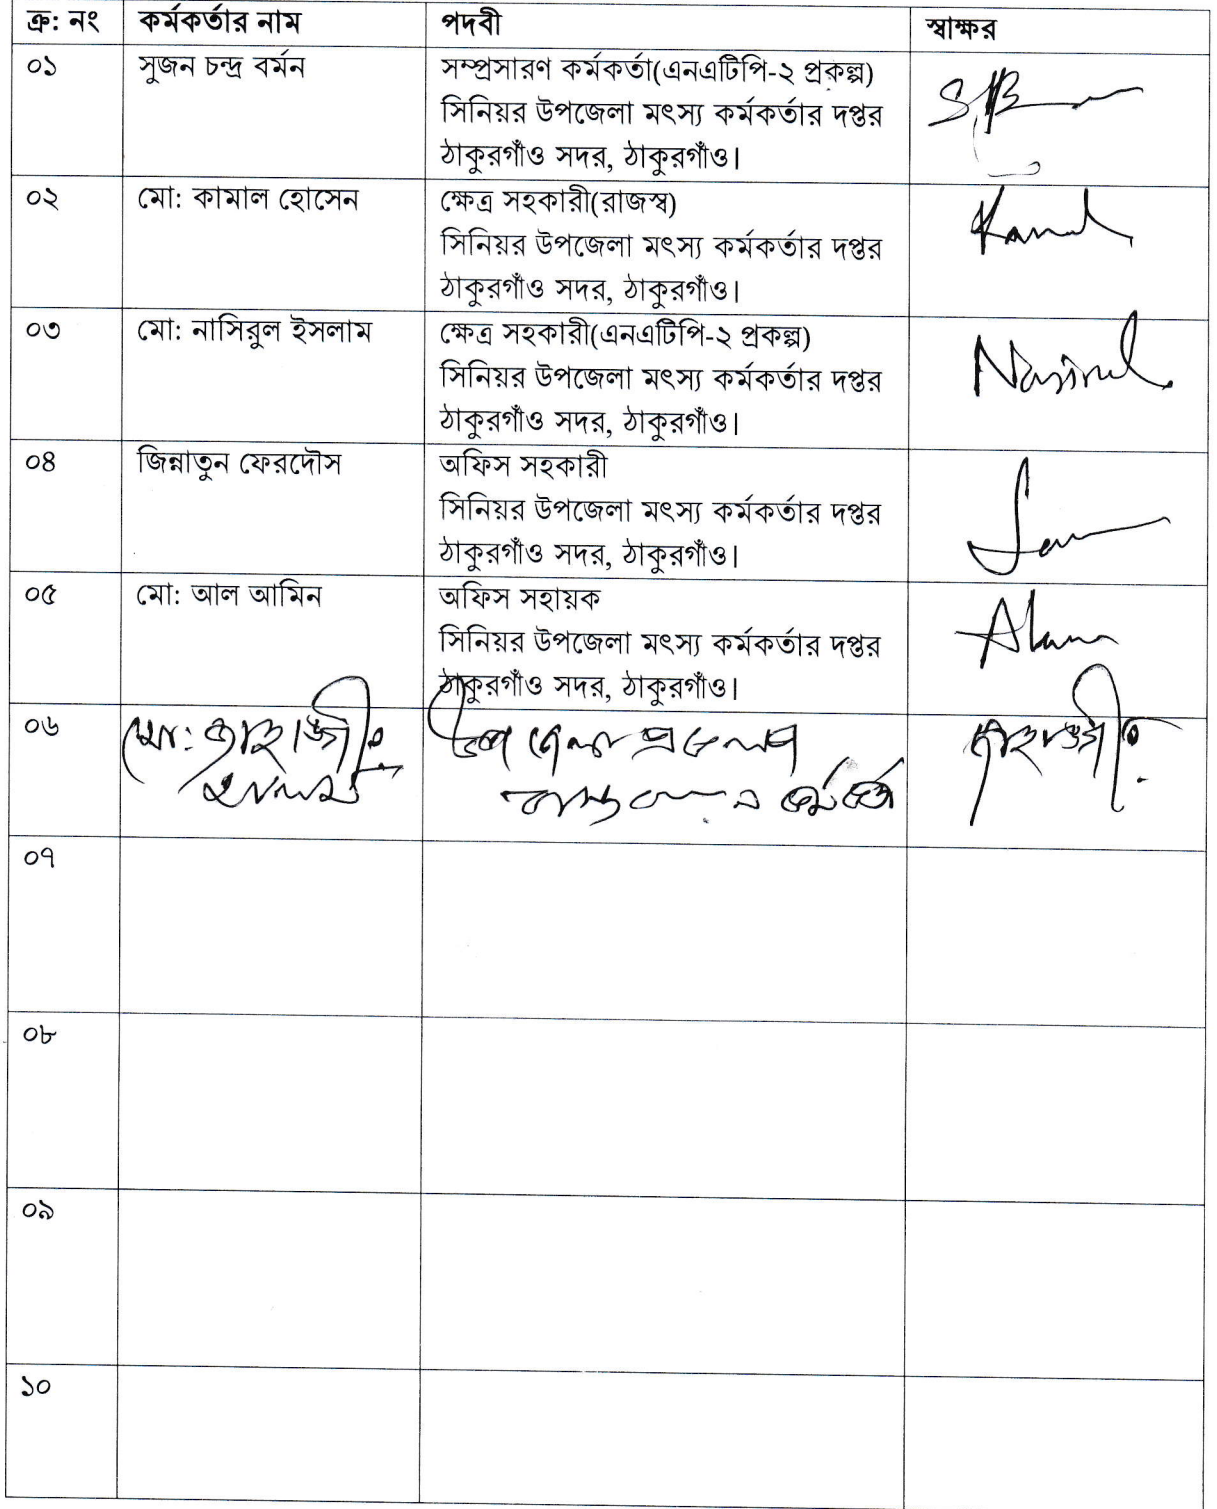 ক্র: নং কর্মকর্তার নাম পদবী স্বাক্ষর
০১ সুজন চন্দ্র বর্মন সম্প্রসারণ কর্মকর্তা(এনএটিপি-২ প্রকল্প)
সিনিয়র উপজেলা মৎস্য কর্মকর্তার দপ্তর
ঠাকুরগাঁও সদর, ঠাকুরগাঁও।
০২ মো: কামাল হোসেন ক্ষেত্র সহকারী(রাজস্ব) Kamal
সিনিয়র উপজেলা মৎস্য কর্মকর্তার দপ্তর
ঠাকুরগাঁও সদর, ঠাকুরগাঁও।
০৩ মো: নাসিরুল ইসলাম ক্ষেত্র সহকারী(এনএটিপি-২ প্রকল্প) Nasirul
সিনিয়র উপজেলা মৎস্য কর্মকর্তার দপ্তর
ঠাকুরগাঁও সদর, ঠাকুরগাঁও।
০৪ জিন্নাতুন ফেরদৌস অফিস সহকারী
সিনিয়র উপজেলা মৎস্য কর্মকর্তার দপ্তর
ঠাকুরগাঁও সদর, ঠাকুরগাঁও।
০৫ মো: আল আমিন অফিস সহায়ক
সিনিয়র উপজেলা মৎস্য কর্মকর্তার দপ্তর
ঠাকুরগাঁও সদর, ঠাকুরগাঁও।
০৬ মো: জাহাঙ্গীর উপজেলা প্রকল্প জাহাঙ্গীর
আলম বাস্তবায়ন কর্মকর্তা
০৭
০৮
০৯
১০